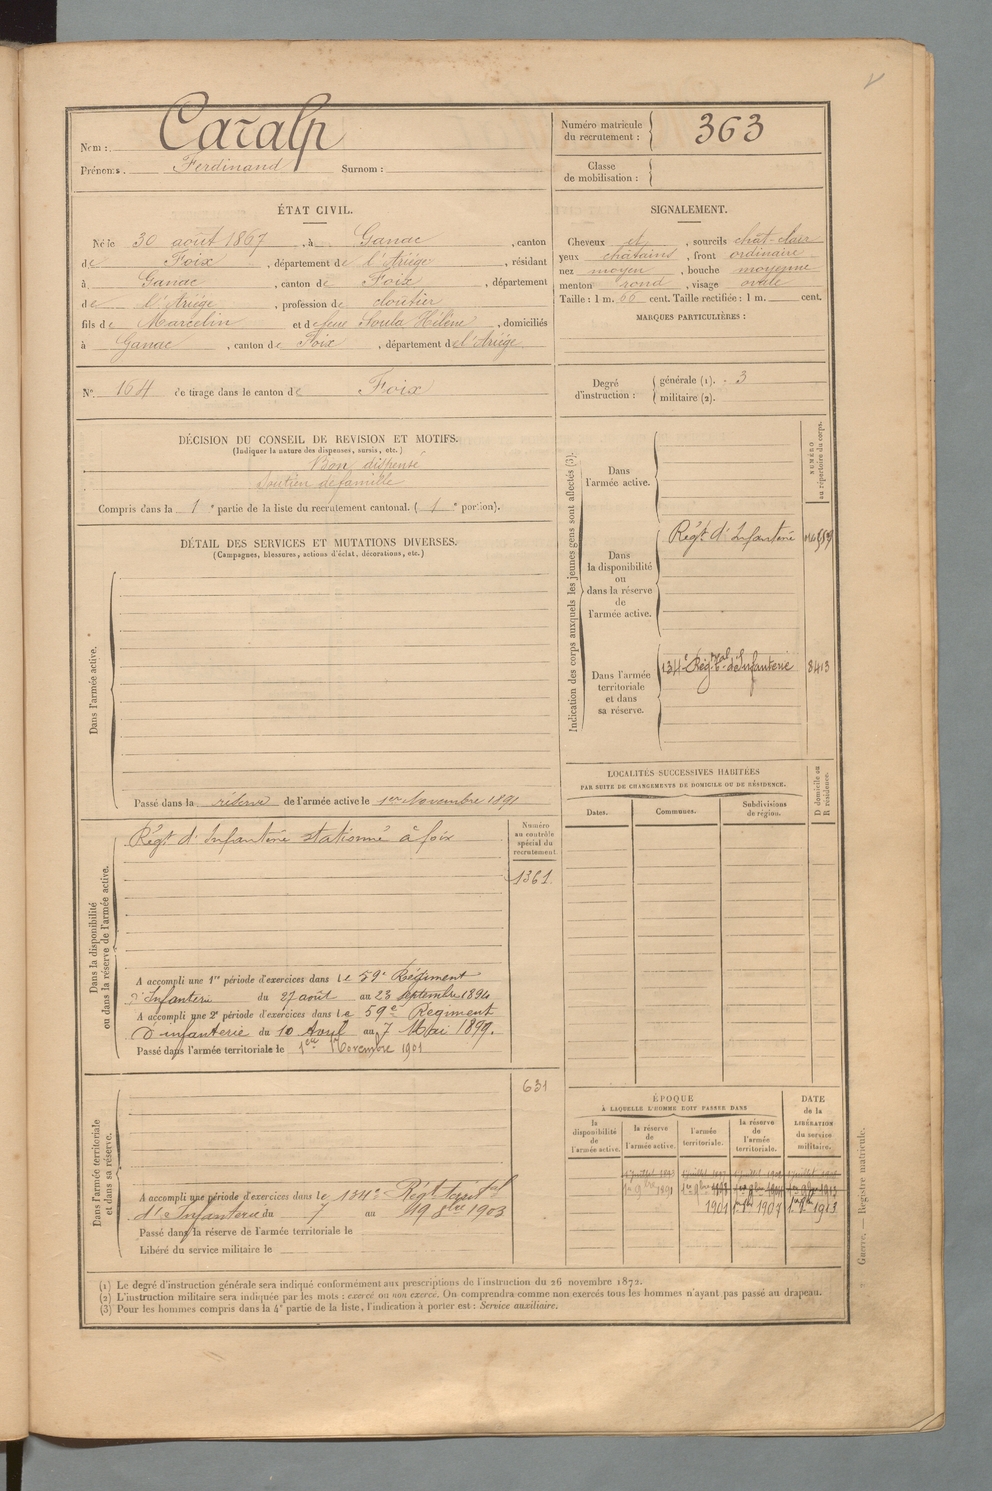 Nom : Caralp
Prénoms : Ferdinand Surnom :
Numéro matricule
du recrutement : 363
Classe
de mobilisation :
ÉTAT CIVIL.
Né le 30 août 1867, à Ganac, canton
de Foix, département de l'Ariège, résidant
à Ganac, canton de Foix, département
de l'Ariège, profession de cloutier
fils de Marcelin et de feue Soula Hélène, domiciliés
à Ganac, canton de Foix, département de l'Ariège
SIGNALEMENT.
Cheveux et, sourcils chât-clairs
yeux chatains, front ordinaire
nez moyen, bouche moyenne
menton rond, visage ovale
Taille : 1 m. 66 cent. Taille rectifiée : 1 m. cent.
MARQUES PARTICULIÈRES :
N° 164 de tirage dans le canton de Foix
Degré
d'instruction :
générale (1). 3
militaire (2).
DÉCISION DU CONSEIL DE REVISION ET MOTIFS.
(Indiquer la nature des dispenses, sursis, etc.)
Bon dispensé
Soutien de famille
Compris dans la 1e partie de la liste du recrutement cantonal. (1e portion).
DÉTAIL DES SERVICES ET MUTATIONS DIVERSES.
(Campagnes, blessures, actions d'éclat, décorations, etc.)
Dans l'armée active.
Passé dans la réserve de l'armée active le 1er Novembre 1891
Indication des corps auxquels les jeunes gens sont affectés (3).
NUMÉRO
au répertoire du corps.
Dans
l'armée active.
Dans
la disponibilité
ou
dans la réserve
de
l'armée active.
Régt d'Infanterie
Dans l'armée
territoriale
et dans
sa réserve.
134e Régt d'Infanterie 8413
Dans la disponibilité
ou dans la réserve de l'armée active.
Régt d'Infanterie stationné à foix
Numéro
au contrôle
spécial du
recrutement.
1361
A accompli une 1re période d'exercices dans le 59e Régiment
d'Infanterie du 27 août au 23 septembre 1894
A accompli une 2e période d'exercices dans le 59e Régiment
d'infanterie du 10 Avril au 7 Mai 1899.
Passé dans l'armée territoriale le 1er Novembre 1901
LOCALITÉS SUCCESSIVES HABITÉES
PAR SUITE DE CHANGEMENTS DE DOMICILE OU DE RÉSIDENCE.
Dates.
Communes.
Subdivisions
de région.
D domicile ou
R résidence.
Dans l'armée territoriale
et dans sa réserve.
631
A accompli une période d'exercices dans le 134e Régt territal
d'Infanterie du 7 au 19 8bre 1903
Passé dans la réserve de l'armée territoriale le
Libéré du service militaire le
ÉPOQUE
À LAQUELLE L'HOMME DOIT PASSER DANS
la
disponibilité
de
l'armée active.
la réserve
de
l'armée active.
l'armée
territoriale.
la réserve
de
l'armée
territoriale.
DATE
de la
LIBÉRATION
du service
militaire.
1er 9bre 1891
1901 1er 9bre 1907 1er 9bre 1913
(1) Le degré d'instruction générale sera indiqué conformément aux prescriptions de l'instruction du 26 novembre 1872.
(2) L'instruction militaire sera indiquée par les mots : exercé ou non exercé. On comprendra comme non exercés tous les hommes n'ayant pas passé au drapeau.
(3) Pour les hommes compris dans la 4e partie de la liste, l'indication à porter est : Service auxiliaire.
Guerre. — Registre matricule.